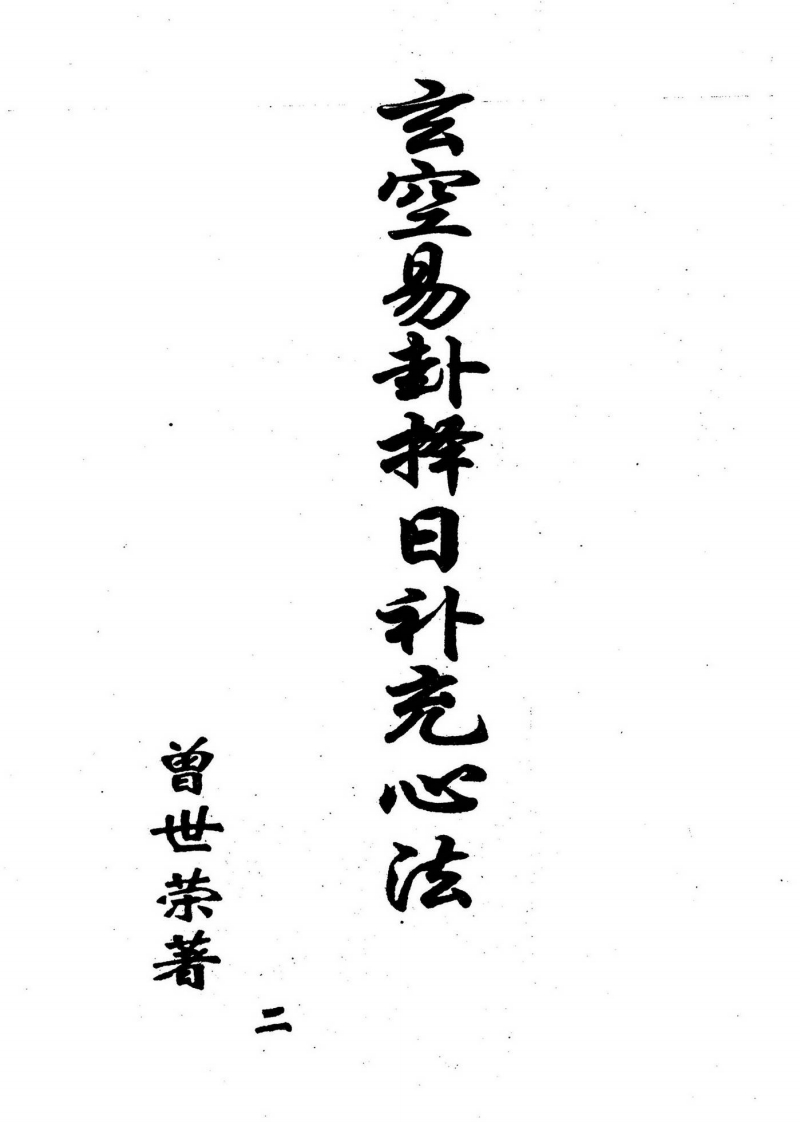 玄空易卦择日补充心法
曾世荣著
二